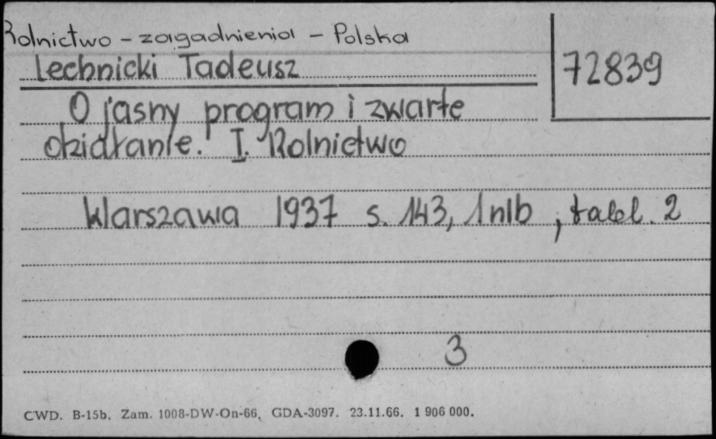 Rolnictwo - zagadnienia - Polska
Lechnicki Tadeusz
72839
O jasny program i zwarte
działanie. I. Rolnictwo
Warszawa 1937 s. 143, 1 nlb ; tabl. 2
3
CWD. B-15b. Zam. 1008-DW-On-66, GDA-3097. 23.11.66. 1 906 000.